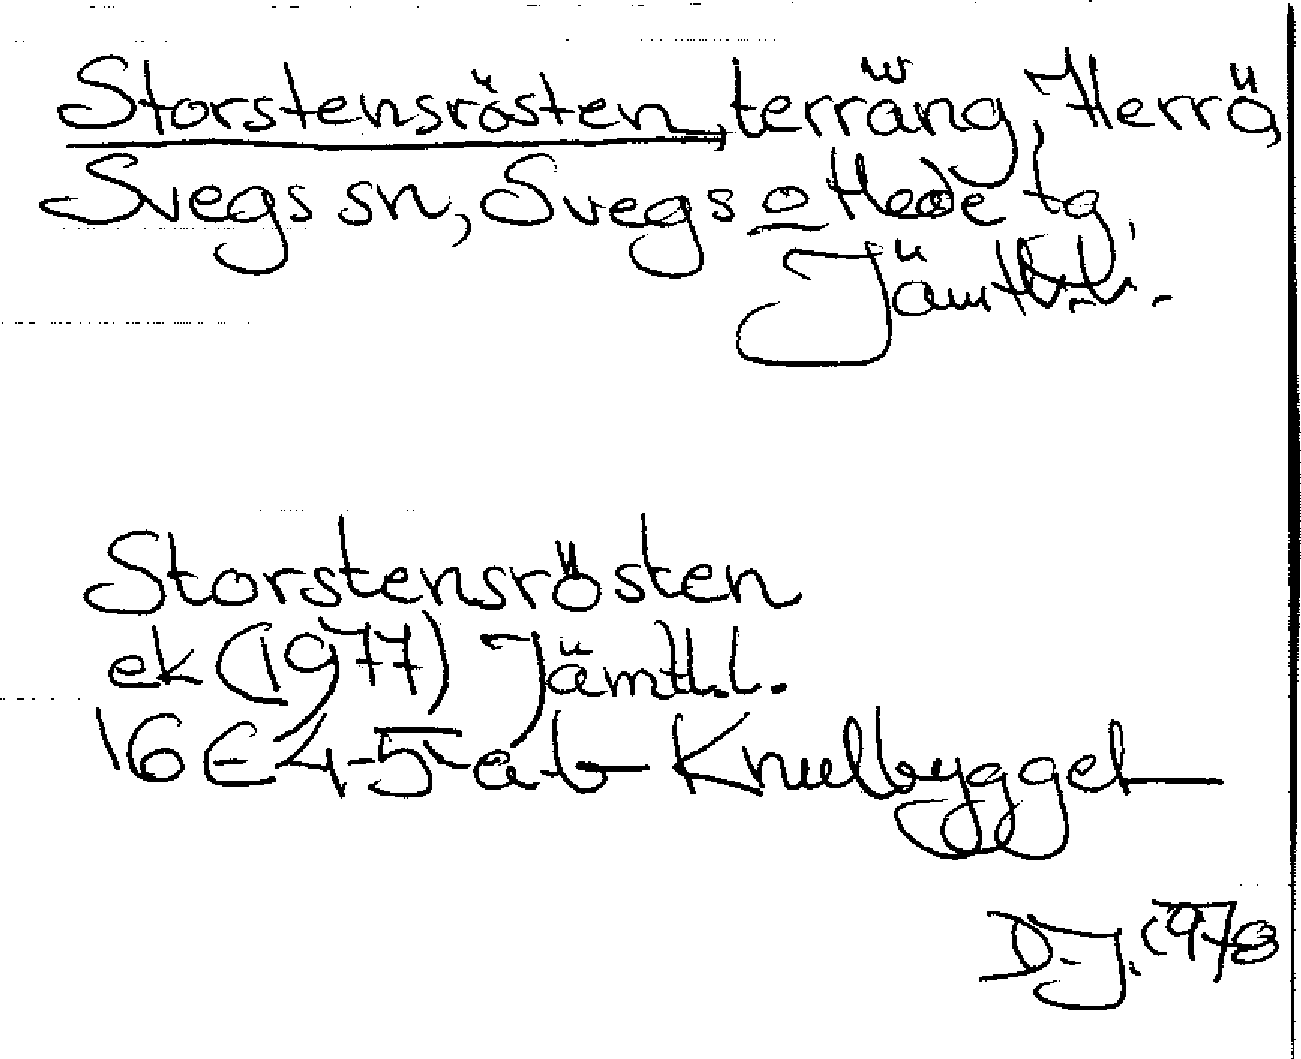 Storstensrösten, terräng, Herrö,
Svegs sn, Svegs o Hede tg,
Jämtl.l.
Storstensrösten
ek (1977) Jämtl.l.
16E 4-5 a-b Knulbygget
D-J. 1978